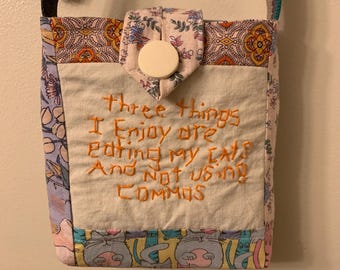 three things
I Enjoy are
eating my CATS
And Not using
COMMAS